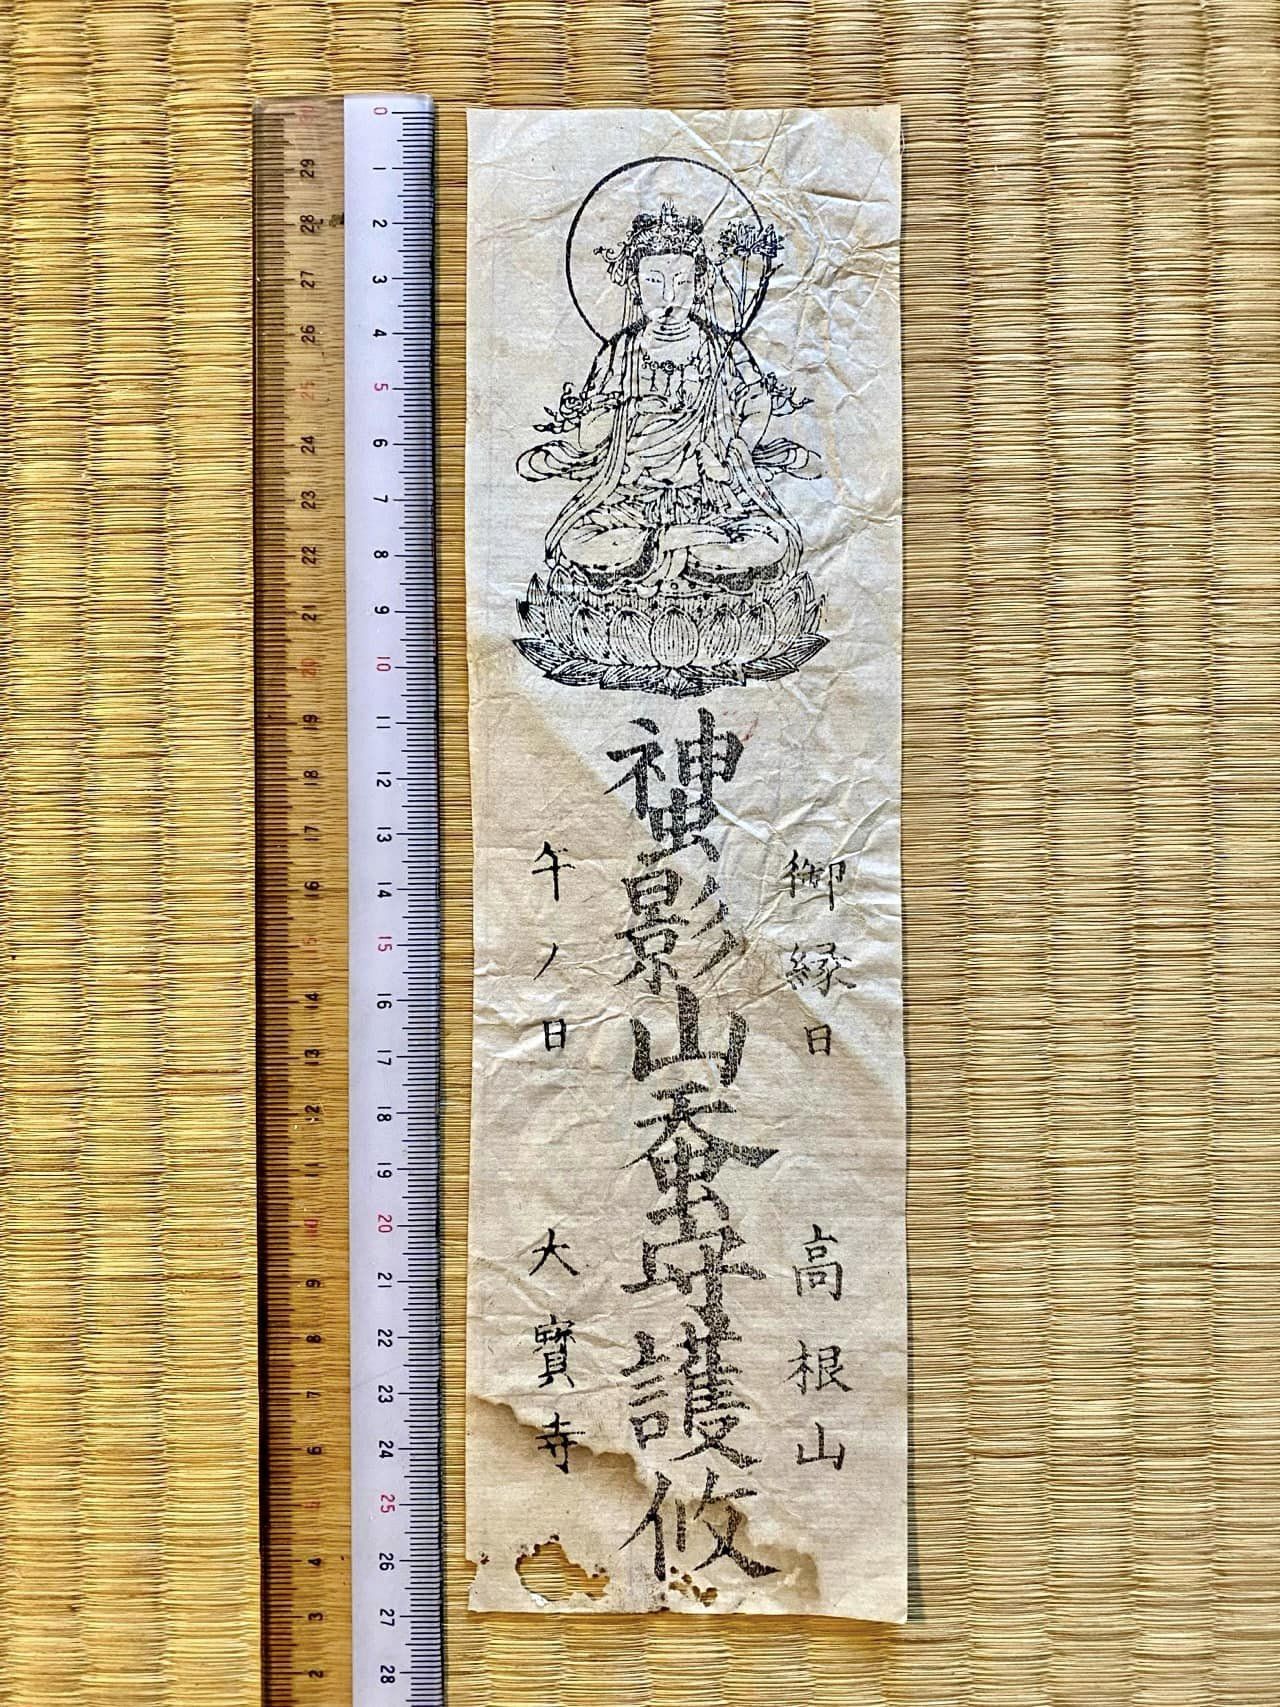 御縁日 高根山
神虫影山蚕守護攸
午ノ日 大寶寺
0 1 2 3 4 5 6 7 8 9 10 11 12 13 14 15 16 17 18 19 20 21 22 23 24 25 26 27 28
29 28 27 26 25 24 23 22 21 20 19 18 17 16 15 14 13 12 11 10 9 8 7 6 5 4 3 2